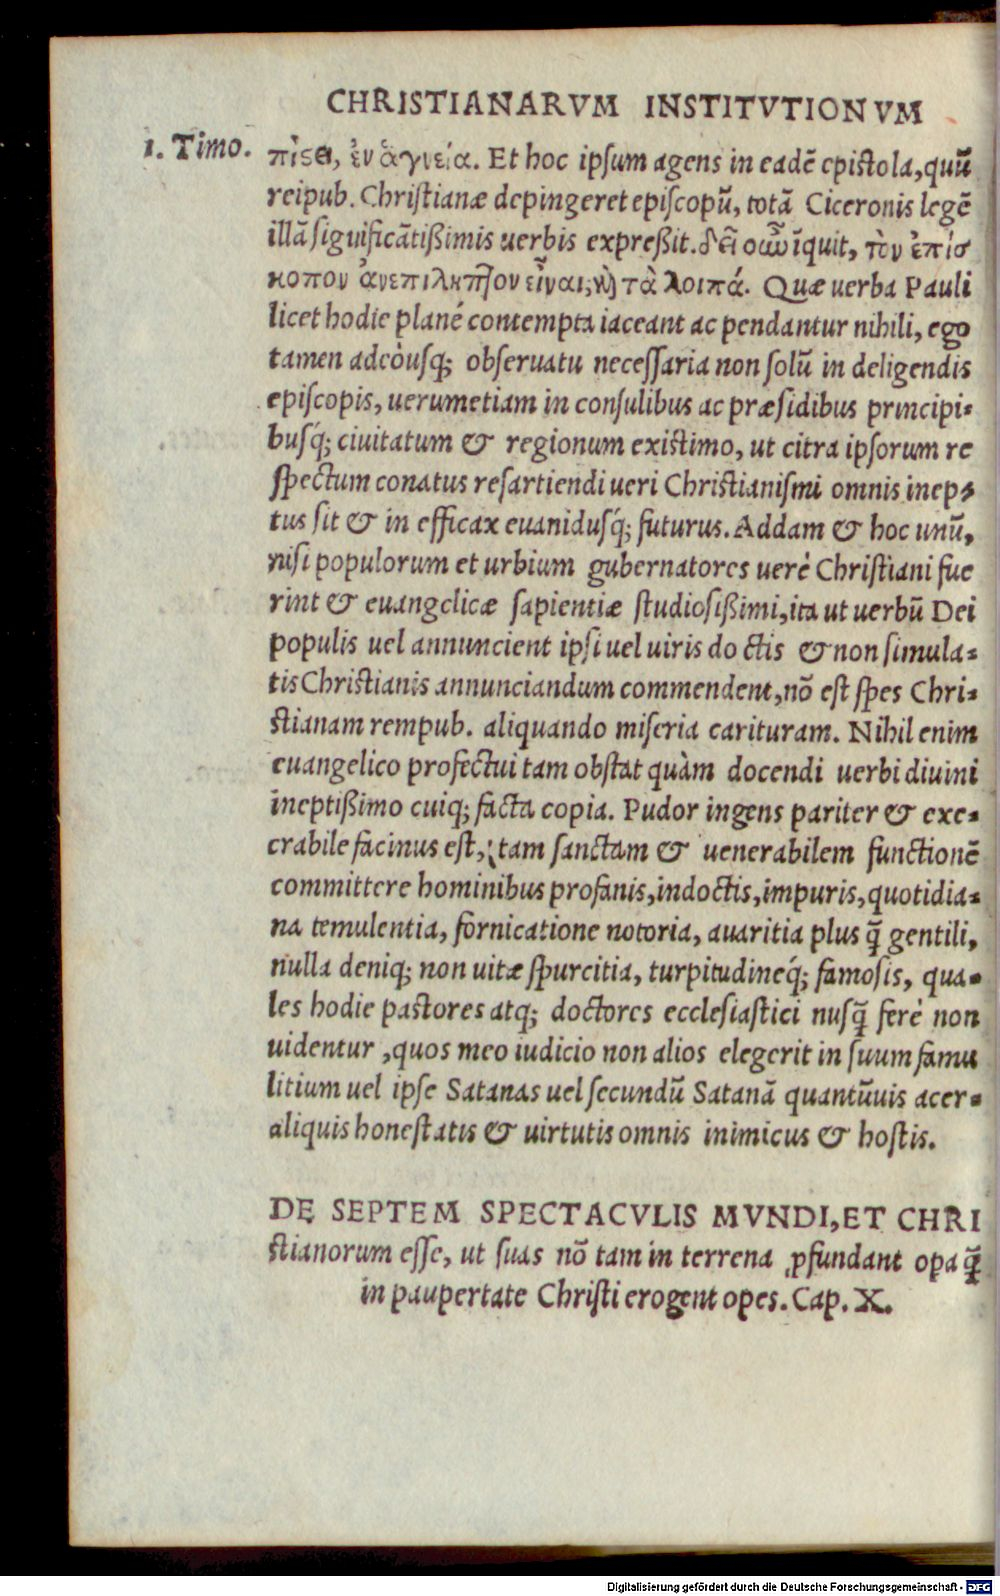 CHRISTIANARVM INSTITVTIONVM
1. Timo.
πίϛει, ἐν ἁγνείᾳ. Et hoc ipsum agens in eadē epistola, quū
reipub. Christianæ depingeret episcopū, totā Ciceronis legē
illā siguificātißimis uerbis expreßit. δεῖ οὖν īquit, τὸν ἐπίσ
κοπον ἀνεπίληπτον εἶναι, κὴ τὰ λοιπά. Quæ uerba Pauli
licet hodie plané contempta iaceant ac pendantur nihili, ego
tamen adeòusq; obseruatu necessaria non solū in deligendis
episcopis, uerumetiam in consulibus ac præsidibus principi-
busq́; ciuitatum & regionum existimo, ut citra ipsorum re
spectum conatus resartiendi ueri Christianismi omnis inep-
tus sit & in efficax euanidusq́; futurus. Addam & hoc unū,
nisi populorum et urbium gubernatores uerè Christiani fue
rint & euangelicæ sapientiæ studiosißimi, ita ut uerbū Dei
populis uel annuncient ipsi uel uiris do ctis & non simula-
tis Christianis annunciandum commendent, nō est spes Chri-
stianam rempub. aliquando miseria carituram. Nihil enim
euangelico profectui tam obstat quàm docendi uerbi diuini
ineptißimo cuiq; facta copia. Pudor ingens pariter & exe-
crabile facinus est, tam sanctam & uenerabilem functionē
committere hominibus profanis, indoctis, impuris, quotidia-
na temulentia, fornicatione notoria, auaritia plus q̄ gentili,
nulla deniq; non uitæ spurcitia, turpitudineq́; famosis, qua-
les hodie pastores atq; doctores ecclesiastici nusq̄ ferè non
uidentur, quos meo iudicio non alios elegerit in suum famu
litium uel ipse Satanas uel secundū Satanā quantūuis acer-
aliquis honestatis & uirtutis omnis inimicus & hostis.
DE SEPTEM SPECTACVLIS MVNDI, ET CHRI
stianorum esse, ut suas nō tam in terrena ꝓfundant opa q̄
in paupertate Christi erogent opes. Cap. X.
Digitalisierung gefördert durch die Deutsche Forschungsgemeinschaft - DFG